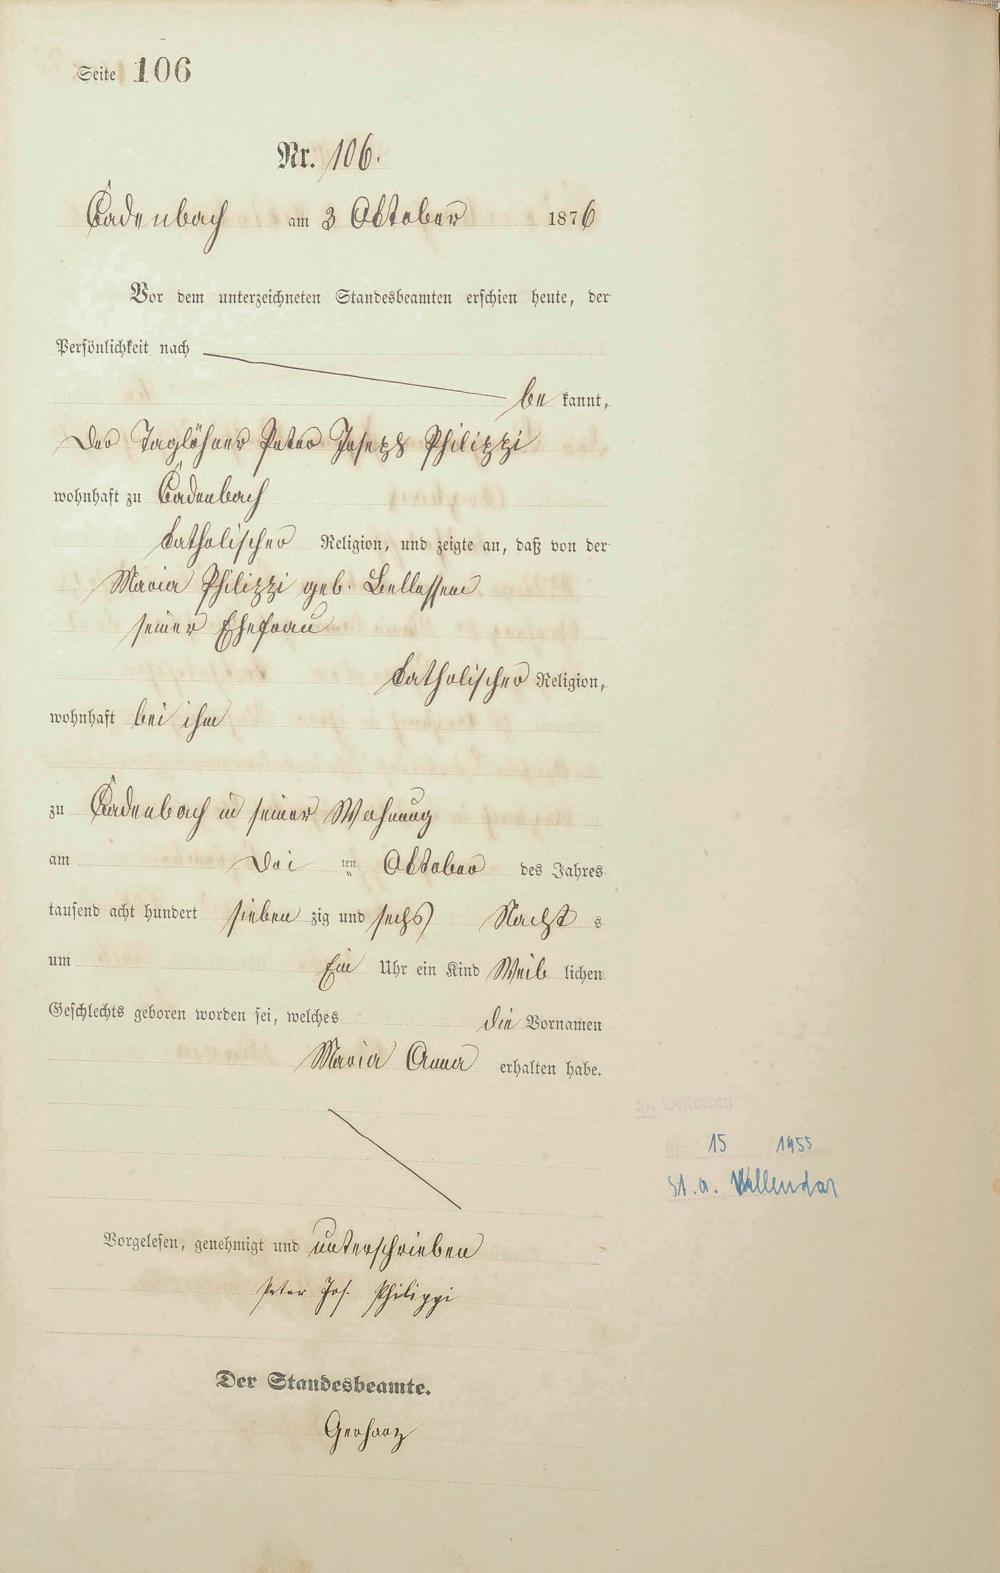 Seite 106
Nr. 106.
Cadenbach am 3 Oktober 1876
Vor dem unterzeichneten Standesbeamten erschien heute, der
Persönlichkeit nach
be kannt,
Der Taglöhner Peter Joseph Philippi
wohnhaft zu Cadenbach
katholischer Religion, und zeigte an, daß von der
Maria Philippi geb.
seiner Ehefrau
katholischer Religion,
wohnhaft bei ihm
zu Cadenbach in seiner Wohnung
am Drei ten Oktober des Jahres
tausend acht hundert sieben zig und sechs Nacht s
um Ein Uhr ein Kind Weib lichen
Geschlechts geboren worden sei, welches die Vornamen
Maria Anna erhalten habe.
H. Gestorben
15 1955
St. A. Vallendar
Vorgelesen, genehmigt und unterschrieben
Peter Jos. Philippi
Der Standesbeamte.
Gerharz